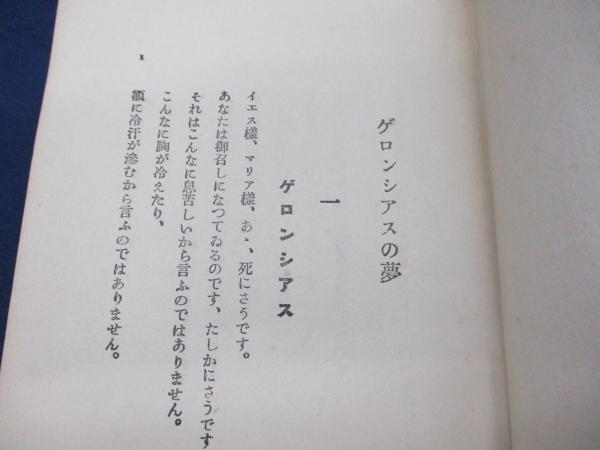 ゲロンシアスの夢
一
ゲロンシアス
イエス様、マリア様、あゝ、死にさうです。
あなたは御召しになつてゐるのです、たしかにさうです
それはこんなに息苦しいから言ふのではありません。
こんなに胸が冷えたり、
額に冷汗が滲むから言ふのではありません。
1